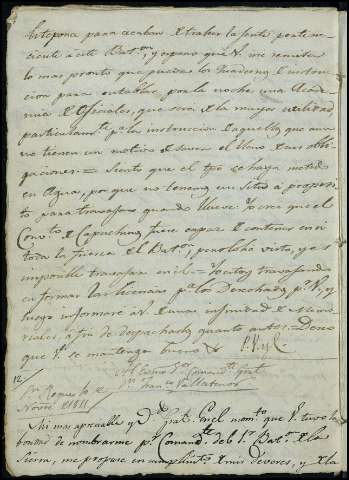 Estepona para acabar de traher la gente pertene-
ciente á este Bat.on, y espero que V. me remita
lo mas pronto que pueda los Quadernos de instruc-
cion para entablar por la noche una Acade-
mia de Oficiales, que será de la mayor utilidad,
particularm.te p.a la instruccion de aquellos que aun
no tienen un motivo de saver el lleno de sus obli-
gaciones = Siento que el tpo se haya metido
en Agua, por que no tenemos un Sitio á proposi-
to para trabajar quando llueve. Yo crei que el
Conv.to de Capuchinos fuese capaz de contener en si
toda la fuerza del Bat.on, pero lo he visto, y es
imposible trabajar en el. = Yo estoy trabajando
en formar las licencias p.a los Desechados p.r V. y
luego informaré á V. de una infinidad de Memo-
riales, á fin de despacharlos quanto antes. Deseo
que V. se mantenga bueno &
S.or Exmo S.or Comand.te Gral
D.n Fran.co Vallesteros
12/ S.n Roque 12 de
Novre de 1811
Mi mas apreciable y D. Gral. Con el nom.to que V. tuvo la
bondad de nombrarme p.r Comand.te del 1.r Bat.on de la
Sierra, me propuse en cumplim.to de mis deveres, y de la